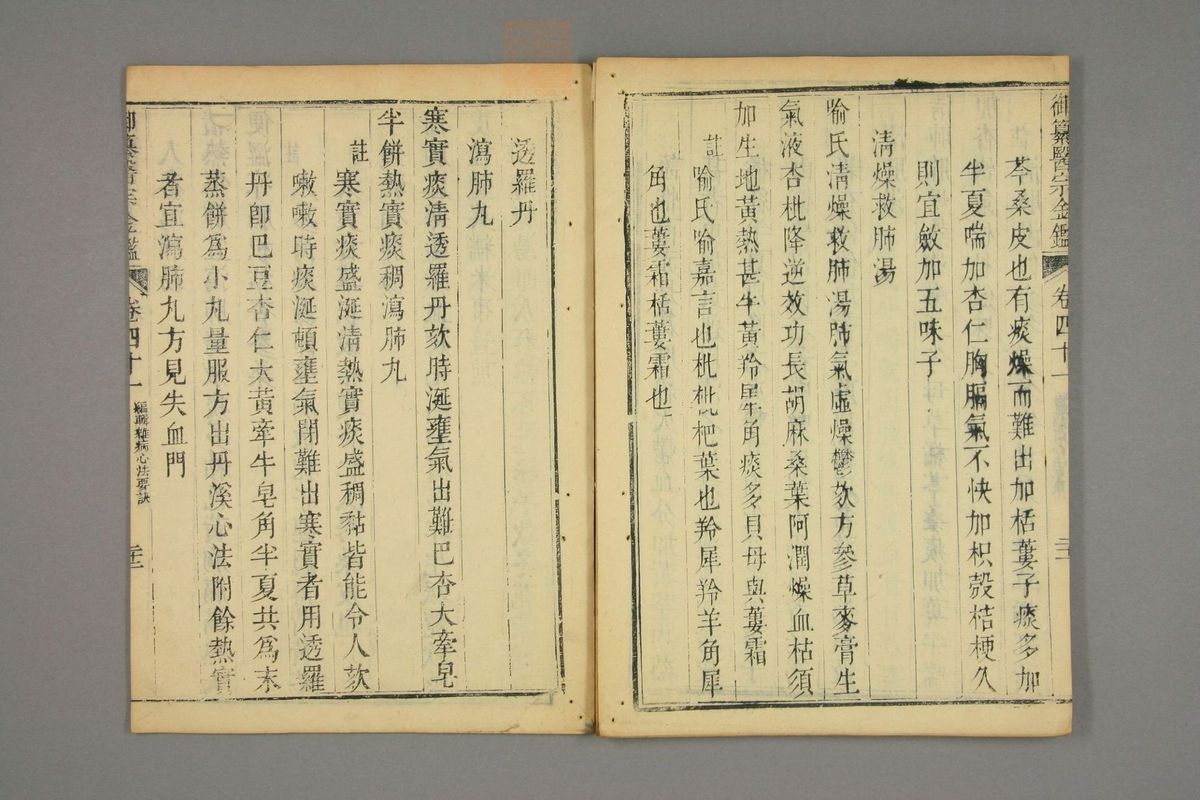 御纂醫宗金鑑 卷四十一
芩桑皮也有痰燥而難出加栝蔞子痰多加
半夏喘加杏仁胸膈氣不快加枳殼桔梗久
則宜斂加五味子
清燥救肺湯
喻氏清燥救肺湯肺氣虛燥鬱欬方參草麥膏生
氣液杏枇降逆效功長胡麻桑葉阿潤燥血枯須
加生地黃熱甚牛黃羚犀角痰多貝母與蔞霜
註 喻氏喻嘉言也枇枇杷葉也羚犀羚羊角犀
角也蔞霜栝蔞霜也
透羅丹
瀉肺丸
寒實痰清透羅丹欬時涎壅氣出難巴杏大牽皂
半餅熱實痰稠瀉肺丸
註 寒實痰盛涎清熱實痰盛稠黏皆能令人欬
嗽嗽時痰涎頓壅氣閉難出寒實者用透羅
丹卽巴豆杏仁大黃牽牛皂角半夏共爲末
蒸餅爲小丸量服方出丹溪心法附餘熱實
者宜瀉肺丸方見失血門
御纂醫宗金鑑 卷四十一 編輯雜病心法要訣